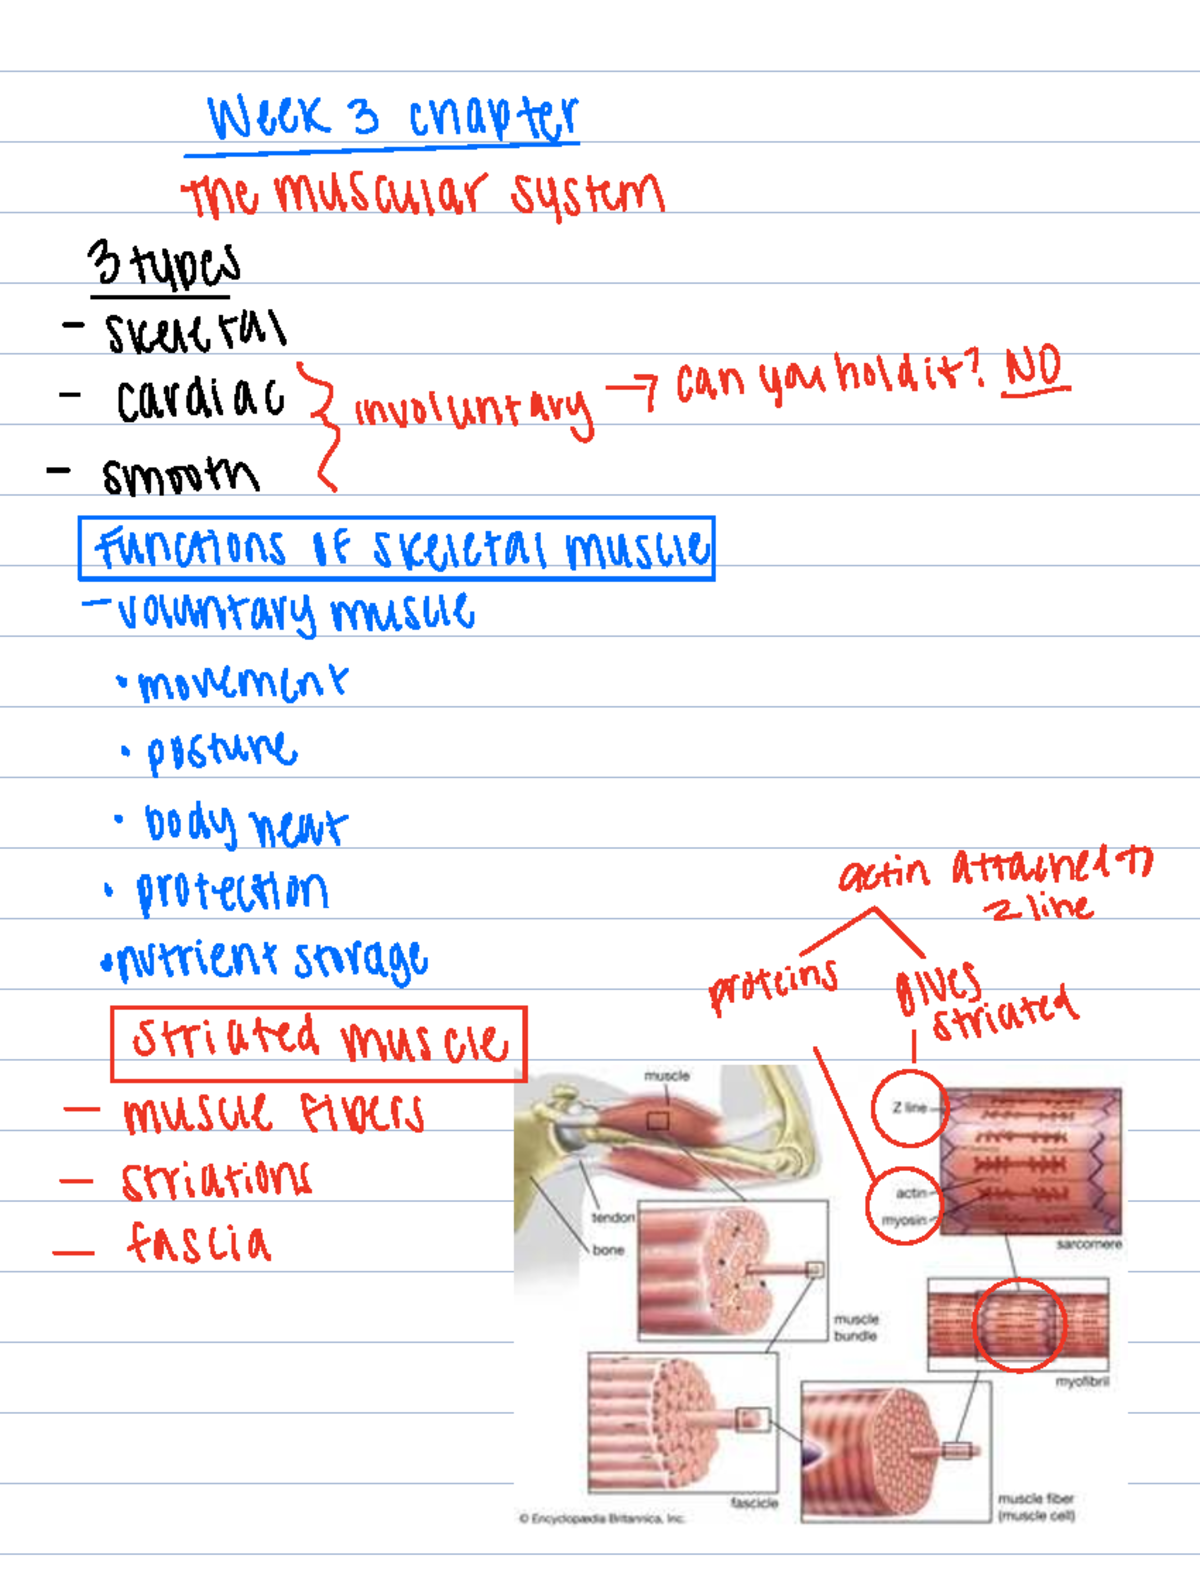 Week 3 chapter
The muscular system
3 types
- skeletal
- cardiac
- smooth
involuntary → can you hold it? NO
Functions of skeletal muscle
- voluntary muscle
• movement
• posture
• body heat
• protection
• nutrient storage
actin attached to
z line
proteins
gives
striated
striated muscle
- muscle fibers
- striations
- fascia
muscle
Z line
actin
myosin
tendon
bone
sarcomere
muscle
bundle
myofibril
fascicle
muscle fiber
(muscle cell)
© Encyclopædia Britannica, Inc.